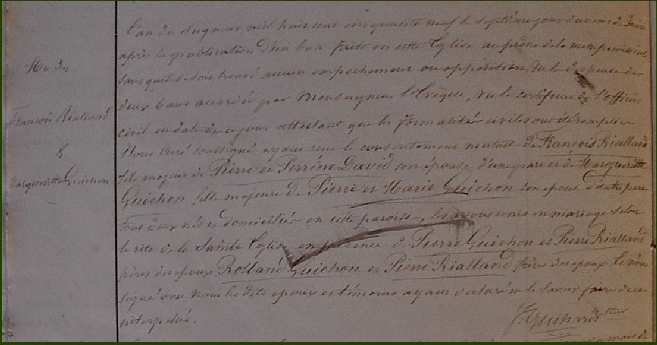 L'an du Seigneur mil huit cent cinquante neuf le septième jour du mois de
après la publication d'un ban faite en cette Eglise au prône de la messe paroissiale
sans qu'il se soit trouvé aucun empêchement ou opposition, Vu la dispense de
deux bans accordée par Monseigneur l'Evêque, vu le certificat de l'officier
civil en date de ce jour attestant que les formalités civiles ont été remplies
Nous curé soussigné ayant reçu le consentement mutuel de François Rialland
fils majeur de Pierre et Perrine David son épouse d'une part et de Marguerite
Guichon fille majeure de Pierre et Marie Guichon son épouse d'autre part
tous deux nés et domiciliés en cette paroisse, les avons unis en mariage selon
le rite de la Sainte Eglise en présence de Pierre Guichon et Pierre Rialland
pères des époux Rolland Guichon et Pierre Rialland frères des époux
signé avec nous les dits époux et témoins ayant déclaré ne le savoir faire de ce
interpellés.
François Rialland
&
Marguerite Guichon